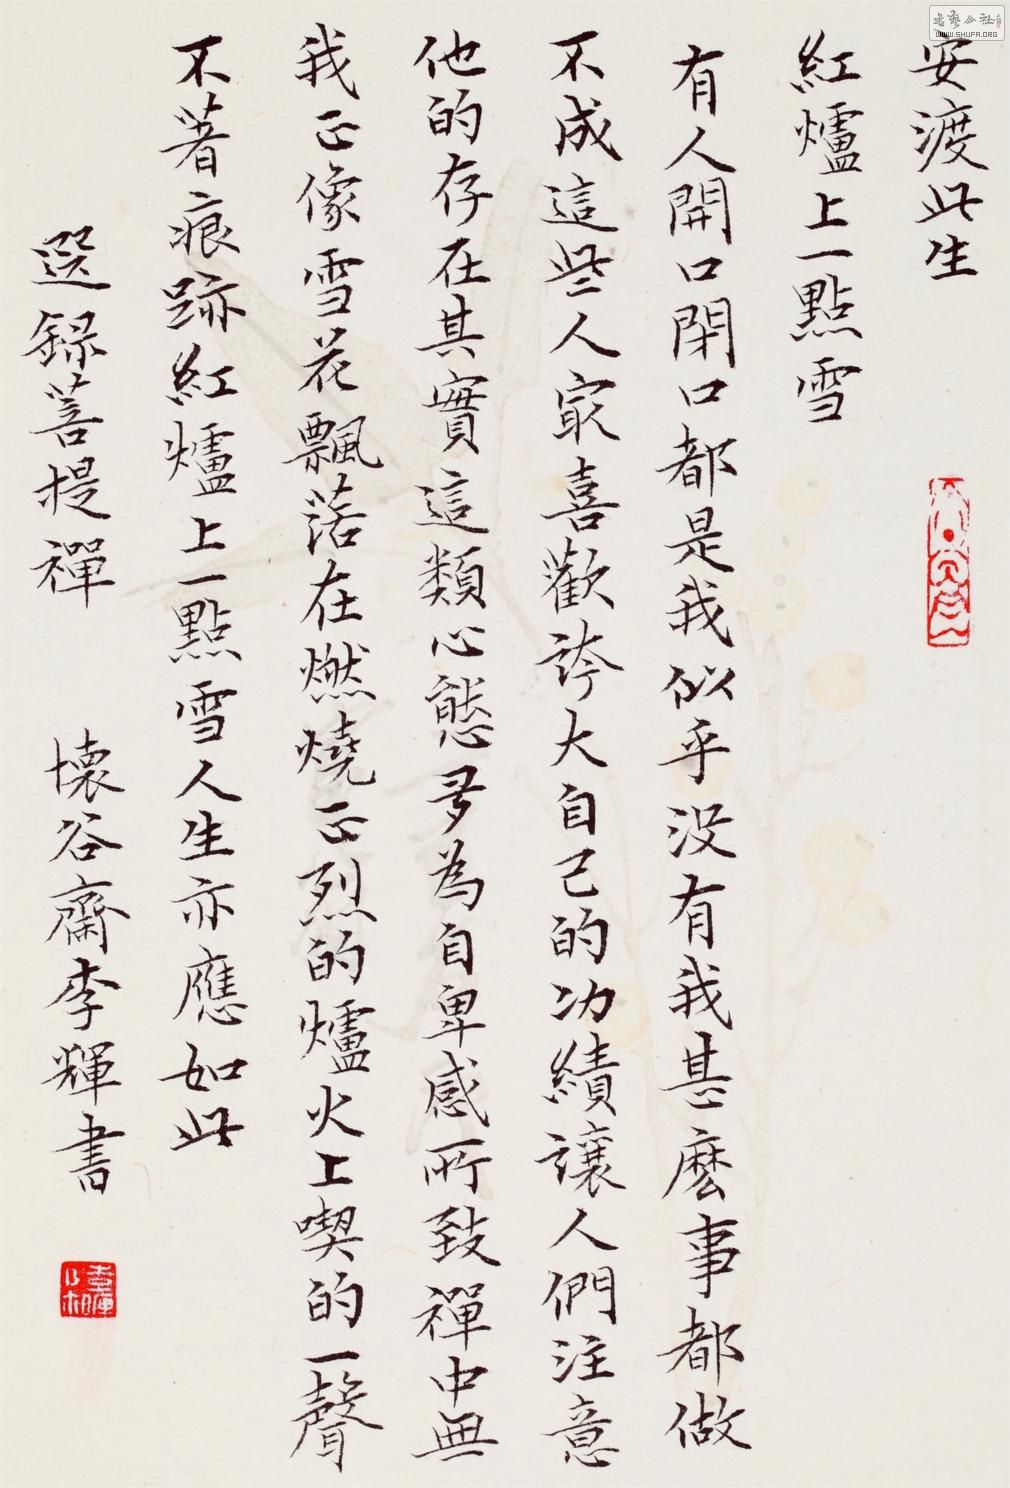 安渡此生
紅爐上一點雪
有人開口閉口都是我似乎没有我甚麽事都做
不成這些人最喜歡誇大自己的功績讓人們注意
他的存在其實這類心態多為自卑感所致禪中無
我正像雪花飄落在燃燒正烈的爐火上喫的一聲
不著痕跡紅爐上一點雪人生亦應如此
選録菩提禪 懷谷齋李輝書
WWW.SHUFA.ORG